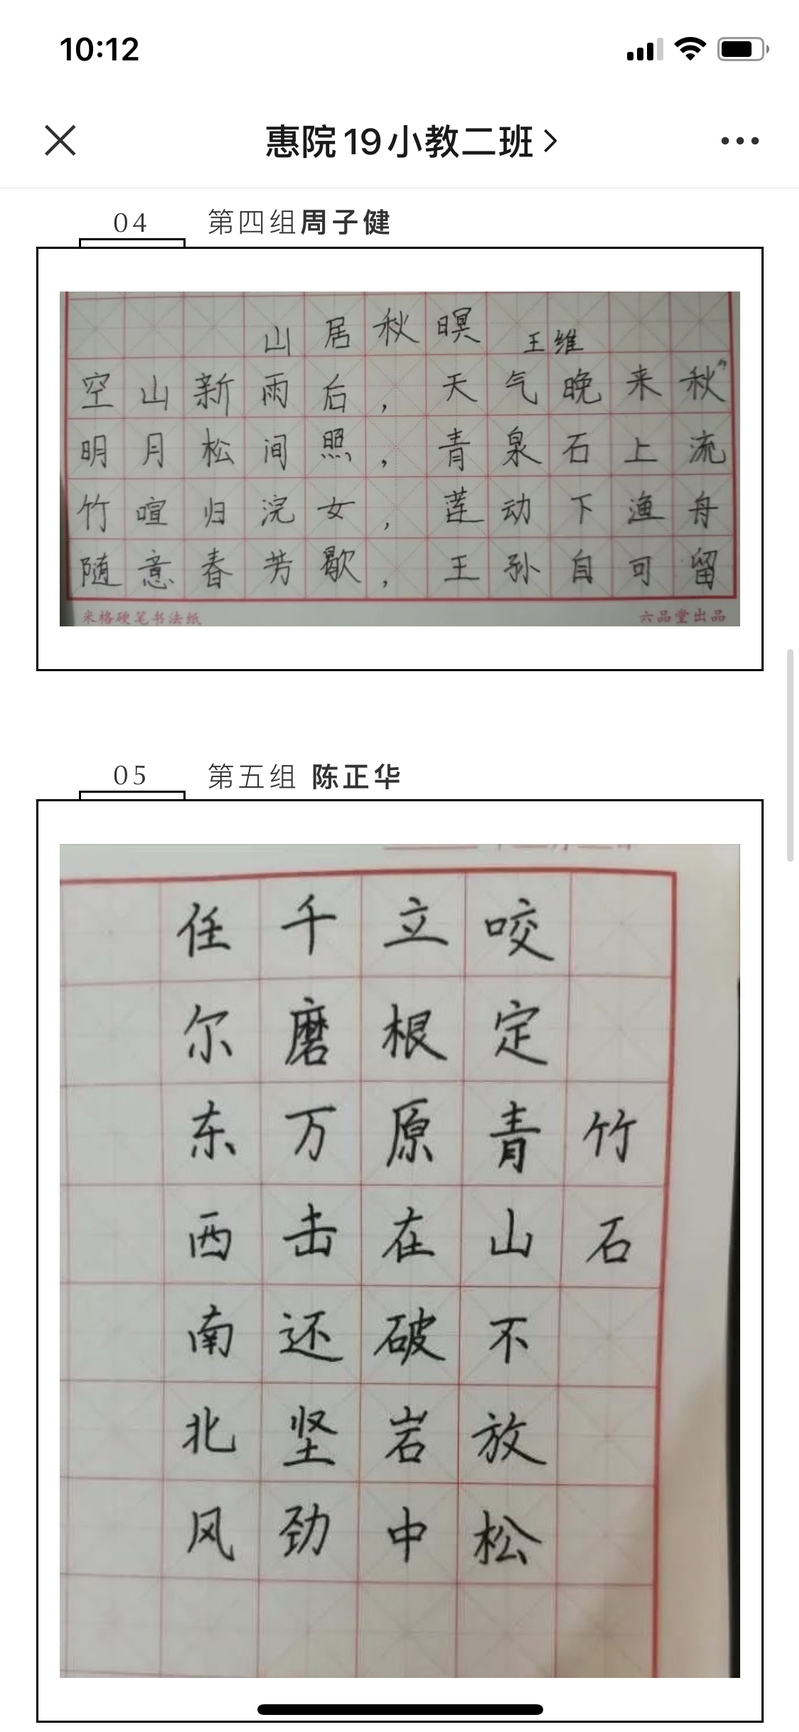 10:12
惠院19小教二班
04 第四组周子健
山居秋暝 王维
空山新雨后，天气晚来秋
明月松间照，青泉石上流
竹喧归浣女，莲动下渔舟
随意春芳歇，王孙自可留
米格硬笔书法纸 六品堂出品
05 第五组 陈正华
竹石
咬定青山不放松
立根原在破岩中
千磨万击还坚劲
任尔东西南北风